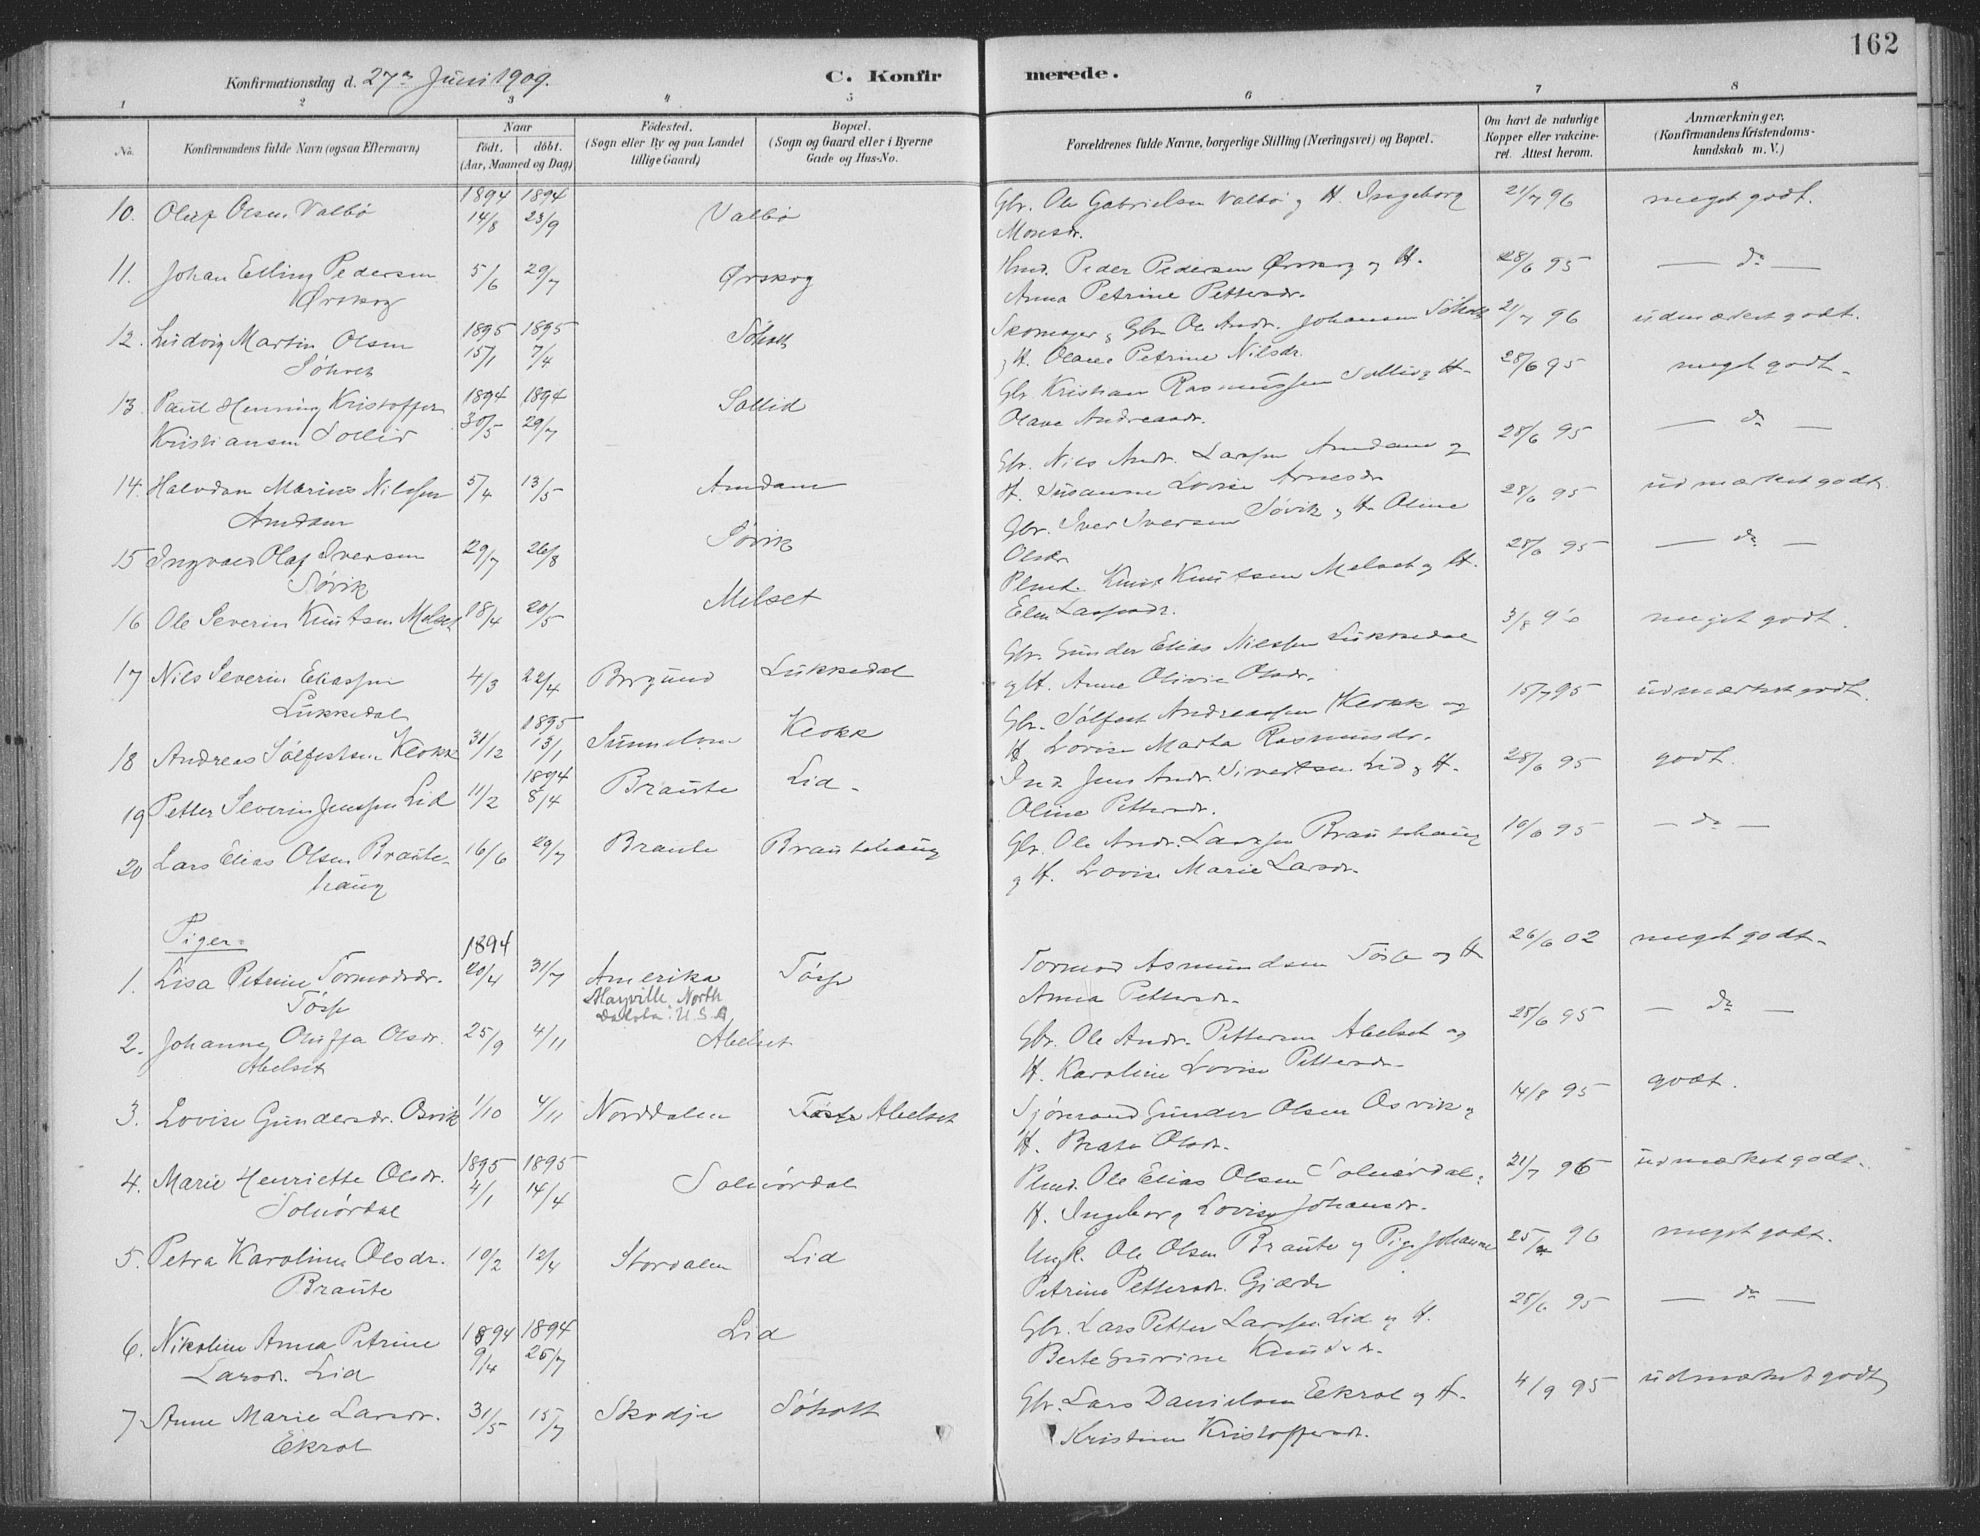 162
Konfirmationsdag d. 27de Juni 1909.
C. Konfirmerede.
1 2 3 4 5 6 7 8
No.
Konfirmandens fulde Navn (ogsaa Efternavn)
Naar
født. døbt.
(Aar, Maaned og Dag)
Fødested.
(Sogn eller By og paa Landet
tillige Gaard)
Bopæl.
(Sogn og Gaard eller i Byerne
Gade og Hus-No.
Forældrenes fulde Navne, borgerlige Stilling (Næringsvei) og Bopæl.
Om havt de naturlige
Kopper eller vakcine-
ret. Attest herom.
Anmærkninger,
(Konfirmandens Kristendoms-
kundskab m. V.)
10. Olaf Olsen Valbø 1894 14/8 1894 23/9 Valbø Gbr. Ole Gabrielsen Valbø og H. Ingeborg
Monsdr. 21/7 96 meget godt.
11. Johan Elling Pedersen
Ørskog 5/6 29/7 Ørskog Hmd. Peder Pedersen Ørskog og H.
Anna Petrine Pettersdr. 28/6 95 — do —
12. Ludvig Martin Olsen
Søholt 1895 15/1 1895 7/4 Søholt Skomager, Gbr. Ole Andr. Johansen Søholt
og H. Olave Petrine Nilsdr. 21/7 96 udmærket godt.
13. Paul Henning Kristoffer
Kristiansen Sollid 1894 30/5 1894 29/7 Sollid Gbr. Kristian Rasmussen Sollid og H.
Olave Andreasdr. 28/6 95 meget godt.
14. Halvdan Marius Nilssen
Amdam 5/4 13/5 Amdam Gbr. Nils Andr. Larssen Amdam og
H. Susanne Lovise Arnesdr 28/6 95 — do —
15 Ingvald Olaf Iversen
Søvik 29/7 26/8 Søvik Gbr. Iver Iversen Søvik og H. Oline
Olsdr 28/6 95 udmærket godt.
16 Ole Severin Knutsen Melset 18/4 20/5 Melset Plmd. Knut Knutsen Melset og H.
Elen Larsdr. 28/6 95 — do —
17 Nils Severin Eliassen
Lukkedal 4/3 22/4 Borgund Lukkedal Gbr. Gunder Elias Nilssen Lukkedal
og H. Anne Olivie Olsdr. 3/8 96 meget godt.
18 Andreas Sølfestsen Klokk 31/12 1895 13/1 Sunnelven Klokk Gbr. Sølfest Andreassen Klokk og
H. Lovise Marta Rasmusdr. 15/7 95 udmærket godt.
19 Petter Severin Jenssen Lid 11/2 1894 8/4 Braute Lid Ind. Jens Andr. Sivertsen Lid og H.
Oline Pettersdr. 28/6 95 godt.
20 Lars Elias Olsen Braute-
haug 16/6 29/7 Braute Brautehaug Gbr. Ole Andr. Larssen Brautehaug
og H. Lovise Marie Larsdr. 19/6 95 — do —
Piger.
1. Lisa Petrine Tormodsdr.
Tøsse 1894 20/4 31/7 Amerika
Mayville, North
Dakota: U.S.A Tøsse Tormod Asmundsen Tøsse og H
Anna Pettersdr. 26/6 02 meget godt.
2. Johanne Oluffa Olsdr.
Abelset 25/9 4/11 Abelset Gbr. Ole Andr. Pettersen Abelset og
H. Karoline Lovise Pettersdr. 28/6 95 — do —
3. Lovise Gundersdr. Osvik 1/10 4/11 Norddalen Abelset Sjømand Gunder Olsen Osvik og
H. Olsdr. 14/8 95 godt.
4. Marie Henriette Olsdr.
Solnørdal 1895 4/1 1895 14/4 Solnørdal Plmd. Ole Elias Olsen Solnørdal
H. Ingeborg Lovise Johansdr. 21/7 96 udmærket godt.
5. Petra Karoline Olsdr.
Braute 10/2 12/4 Stordalen Lid Ungk. Ole Olsen Braute og Pige Johanne
Petrine Pettersdr. Gjærde 25/ 96 meget godt.
6. Nikoline Anna Petrine
Larsdr. Lid 1894 9/4 1894 25/7 Lid Gbr. Lars Petter Larssen Lid og H.
Berte Gurine Knutsdr. 28/6 95 — do —
7 Anne Marie Larsdr.
Ekrol 31/5 15/7 Skodje Søholt Gbr. Lars Danielsen Ekrol og H.
Kristine Kristoffersdr. 4/9 95 udmærket godt